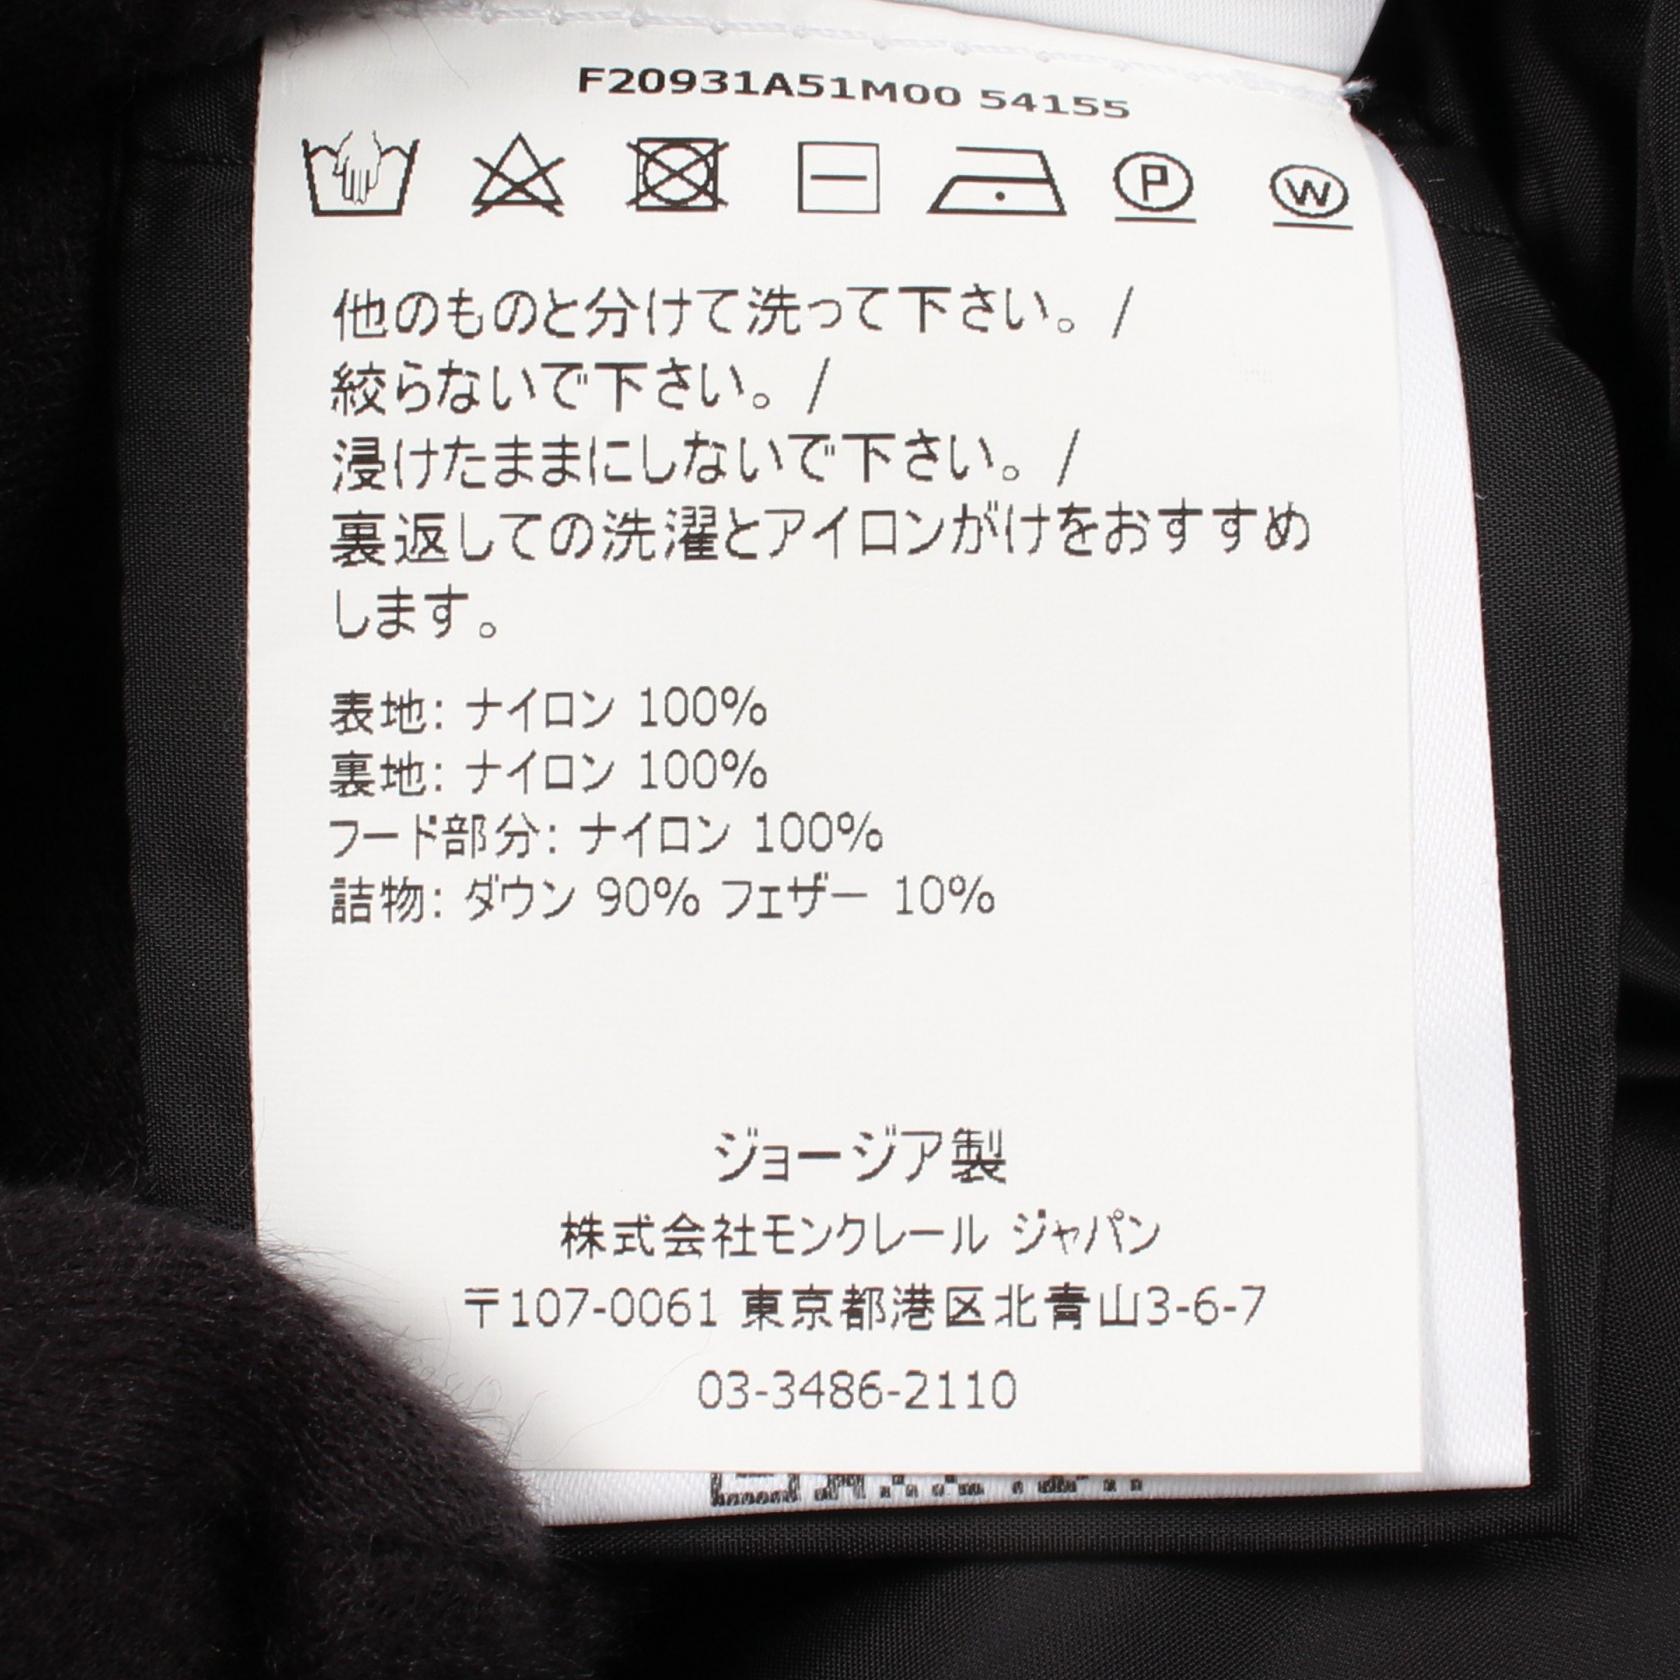 F20931A51M00 54155
P
W
他のものと分けて洗って下さい。/
絞らないで下さい。/
浸けたままにしないで下さい。/
裏返しての洗濯とアイロンがけをおすすめ
します。
表地: ナイロン 100%
裏地: ナイロン 100%
フード部分: ナイロン 100%
詰物: ダウン 90% フェザー 10%
ジョージア製
株式会社モンクレール ジャパン
〒107-0061 東京都港区北青山3-6-7
03-3486-2110